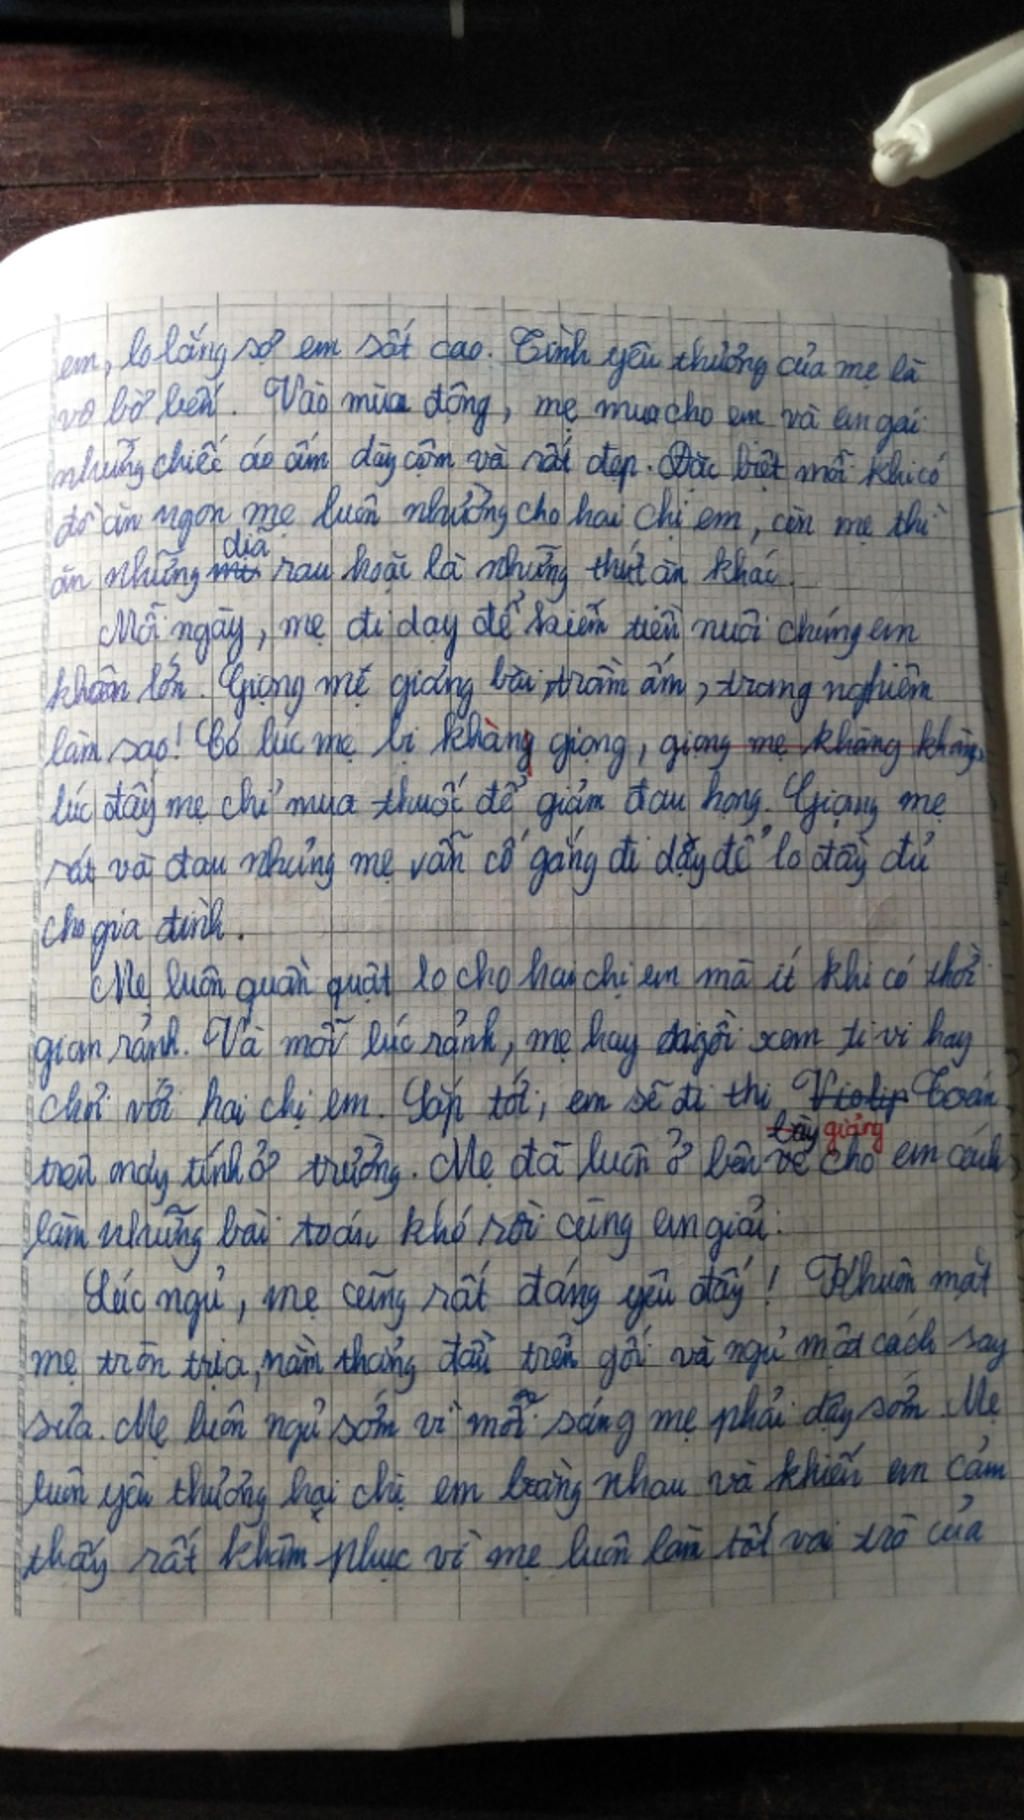 em, lo lắng sợ em sốt cao. Tình yêu thương của mẹ là
vô bờ bến. Vào mùa đông, mẹ mua cho em và em gái
những chiếc áo ấm dày cộm và rất đẹp. Đặc biệt mỗi khi có
đồ ăn ngon mẹ luôn nhường cho hai chị em, còn mẹ thì
ăn những dĩa rau hoặc là những thứ ăn khác.
Mỗi ngày, mẹ đi dạy để kiếm tiền nuôi chúng em
khôn lớn. Giọng mẹ giảng bài trầm ấm, trang nghiêm
làm sao! Có lúc mẹ bị khàng giọng, giọng mẹ khàng khàng,
lúc đấy mẹ chỉ mua thuốc để giảm đau họng. Giọng mẹ
rát và đau nhưng mẹ vẫn cố gắng đi dạy để lo đầy đủ
cho gia đình.
Mẹ luôn quần quật lo cho hai chị em mà ít khi có thời
gian rảnh. Và mỗi lúc rảnh, mẹ hay ngồi xem ti vi hay
chơi với hai chị em. Sắp tới, em sẽ đi thi Violip Toán
trên máy tính ở trường. Mẹ đã luôn ở bên giảng cho em cách
làm những bài toán khó rồi cùng em giải.
Lúc ngủ, mẹ cũng rất đáng yêu đấy! Khuôn mặt
mẹ tròn trịa, nằm thẳng đầu trên gối và ngủ một cách say
sưa. Mẹ luôn ngủ sớm vì mỗi sáng mẹ phải dậy sớm. Mẹ
luôn yêu thương hai chị em bằng nhau và khiến em cảm
thấy rất khâm phục vì mẹ luôn làm tốt vai trò của